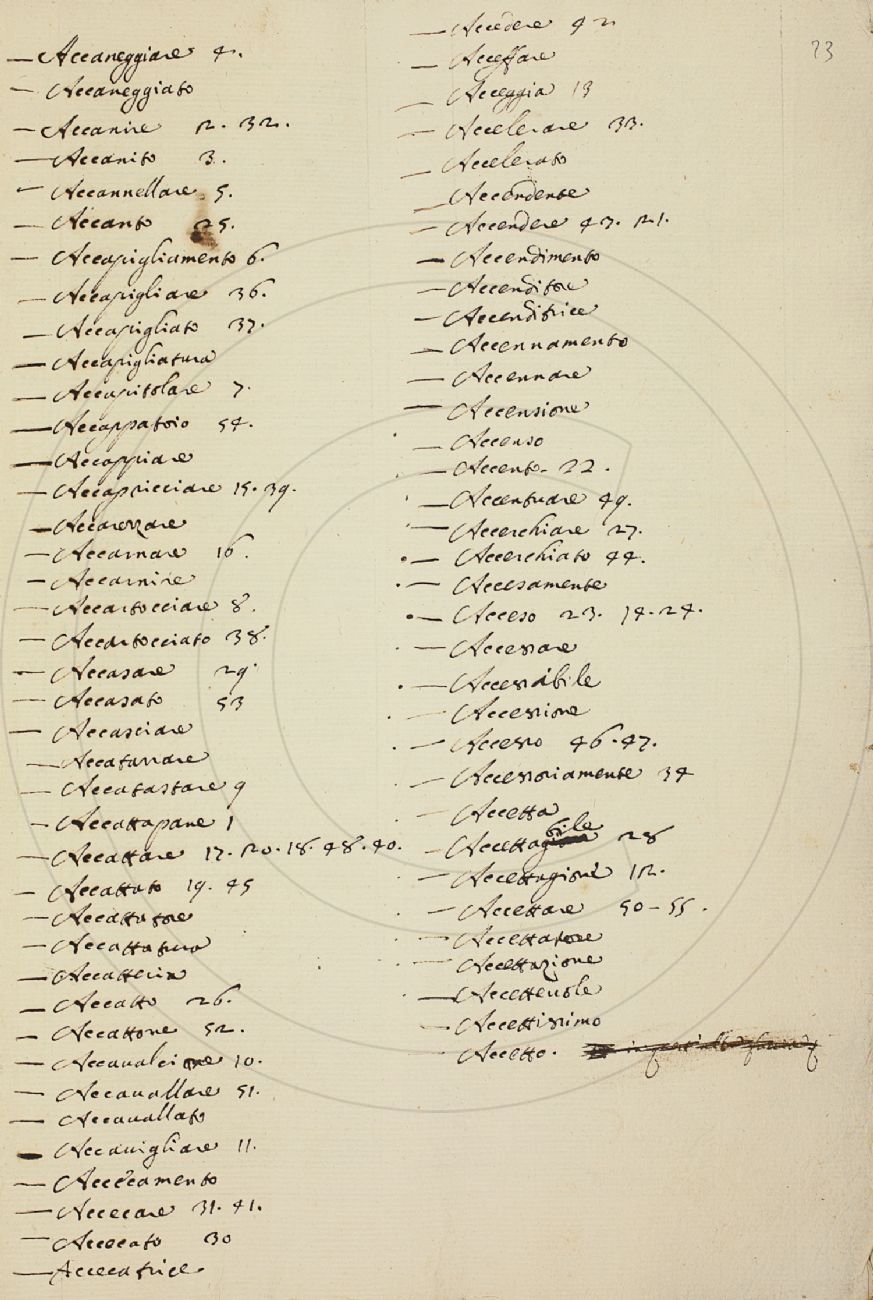 — Accaneggiare 4.
— Accaneggiato
— Accanire 2. 32.
— Accanito 3.
— Accannellare 5.
— Accanto 25.
— Accapigliamento 6.
— Accapigliare 36.
— Accapigliato 37.
— Accapigliatura
— Accapitolare 7.
— Accappatoio 54.
— Accappiare
— Accapricciare 15. 39.
— Accarezzare
— Accarnare 16.
— Accarnire
— Accartocciare 8.
— Accartocciato 38.
— Accasare 29.
— Accasato 53
— Accasciare
— Accatarrare
— Accatastare 9
— Accattapane 1
— Accattare 17. 20. 18. 48. 40.
— Accattato 19. 45
— Accattatore
— Accattatura
— Accatteria
— Accatto 26.
— Accattone 52.
— Accavalciare 10.
— Accavallare 51.
— Accavallato
— Accavigliare 11.
— Accecamento
— Accecare 31. 41.
— Accecato 30
— Accecatrice
23
— Accedere 42
— Acceffare
— Acceggia 13
— Accelerare 33.
— Accelerato
— Accendente
— Accendere 43. 21.
— Accendimento
— Accenditore
— Accenditrice
— Accennamento
— Accennare
— Accensione
— Accenso
— Accento. 22.
— Accentuare 49.
— Accerchiare 27.
— Accerchiato 44.
— Accesamente
— Acceso 23. 14. 24.
— Accessare
— Accessibile
— Accessione
— Accesso 46. 47.
— Accessoriamente 34
— Accetta
— Accettabile 28
— Accettagione 12.
— Accettare 50 - 55.
— Accettatore
— Accettazione
— Accettevole
— Accettissimo
— Accetto.